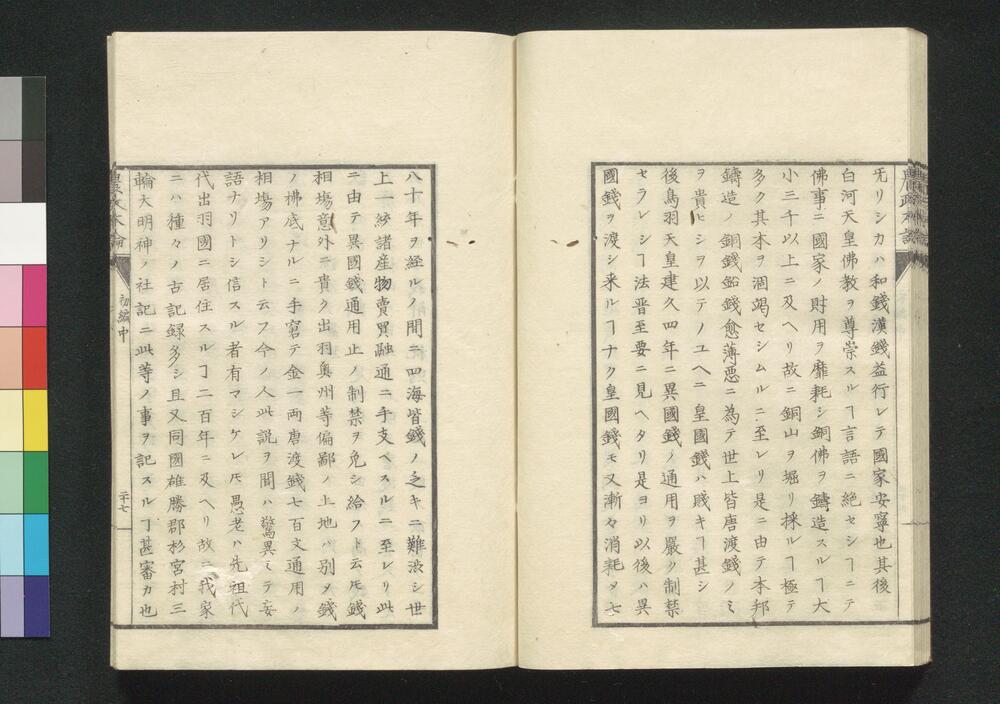 旡リシカハ和錢漢錢益行レテ國家安寧也其後
白河天皇佛教ヲ尊崇スルヿ言語ニ絶セシヿニテ
佛事ニ國家ノ財用ヲ靡耗シ銅佛ヲ鑄造スルヿ大
小三千以上ニ及ヘリ故ニ銅山ヲ堀リ採ルヿ極テ
多ク其本ヲ涸竭セシムルニ至レリ是ニ由テ本邦
鑄造ノ銅錢鉛錢愈薄悪ニ為テ世上皆唐渡錢ノミ
ヲ貴ヒシヲ以テノユヘニ皇國錢ハ賤キヿ甚シ
後鳥羽天皇建久四年ニ異國錢ノ通用ヲ嚴ク制禁
セラレシヿ法晋至要ニ見ヘタリ是ヨリ以後ハ異
國錢ヲ渡シ来ルヿナク皇國錢モ又漸々消耗メ七
八十年ヲ経ルノ間ニ四海皆錢ノ乏キニ難渋シ世
上一紗諸産物賣買融通ニ手支ヘスルニ至レリ此
ニ由テ異國錢通用止ノ制禁ヲ免シ給フト云𪜈錢
相塲意外ニ貴ク出羽奥州等偏鄙ノ土地ハ別メ錢
ノ拂底ナルニ手窘テ金一両唐渡錢七百文通用ノ
相塲アリシト云フ今ノ人此説ヲ聞ハ驚異ミテ妄
語ナリトシ信スル者有マシケレ𪜈愚老ハ先祖代
代出羽國ニ居住スルヿ二百年ニ及ヘリ故ニ我家
ニハ種々ノ古記録多シ且又同國雄勝郡杉宮村三
輪大明神ノ社記ニ此等ノ事ヲ記スルヿ甚審カ也
農政本論
初編中
二十七